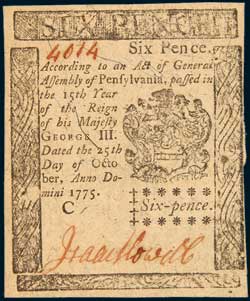 SIX PENCE
4014
Six Pence.
According to an Act of General
Assembly of Pensylvania, passed in
the 15th Year
of the Reign
of his Majesty
GEORGE III.
Dated the 25th
Day of Octo-
ber, Anno Do-
mini 1775.
C
Six-pence.
Isaac Howell